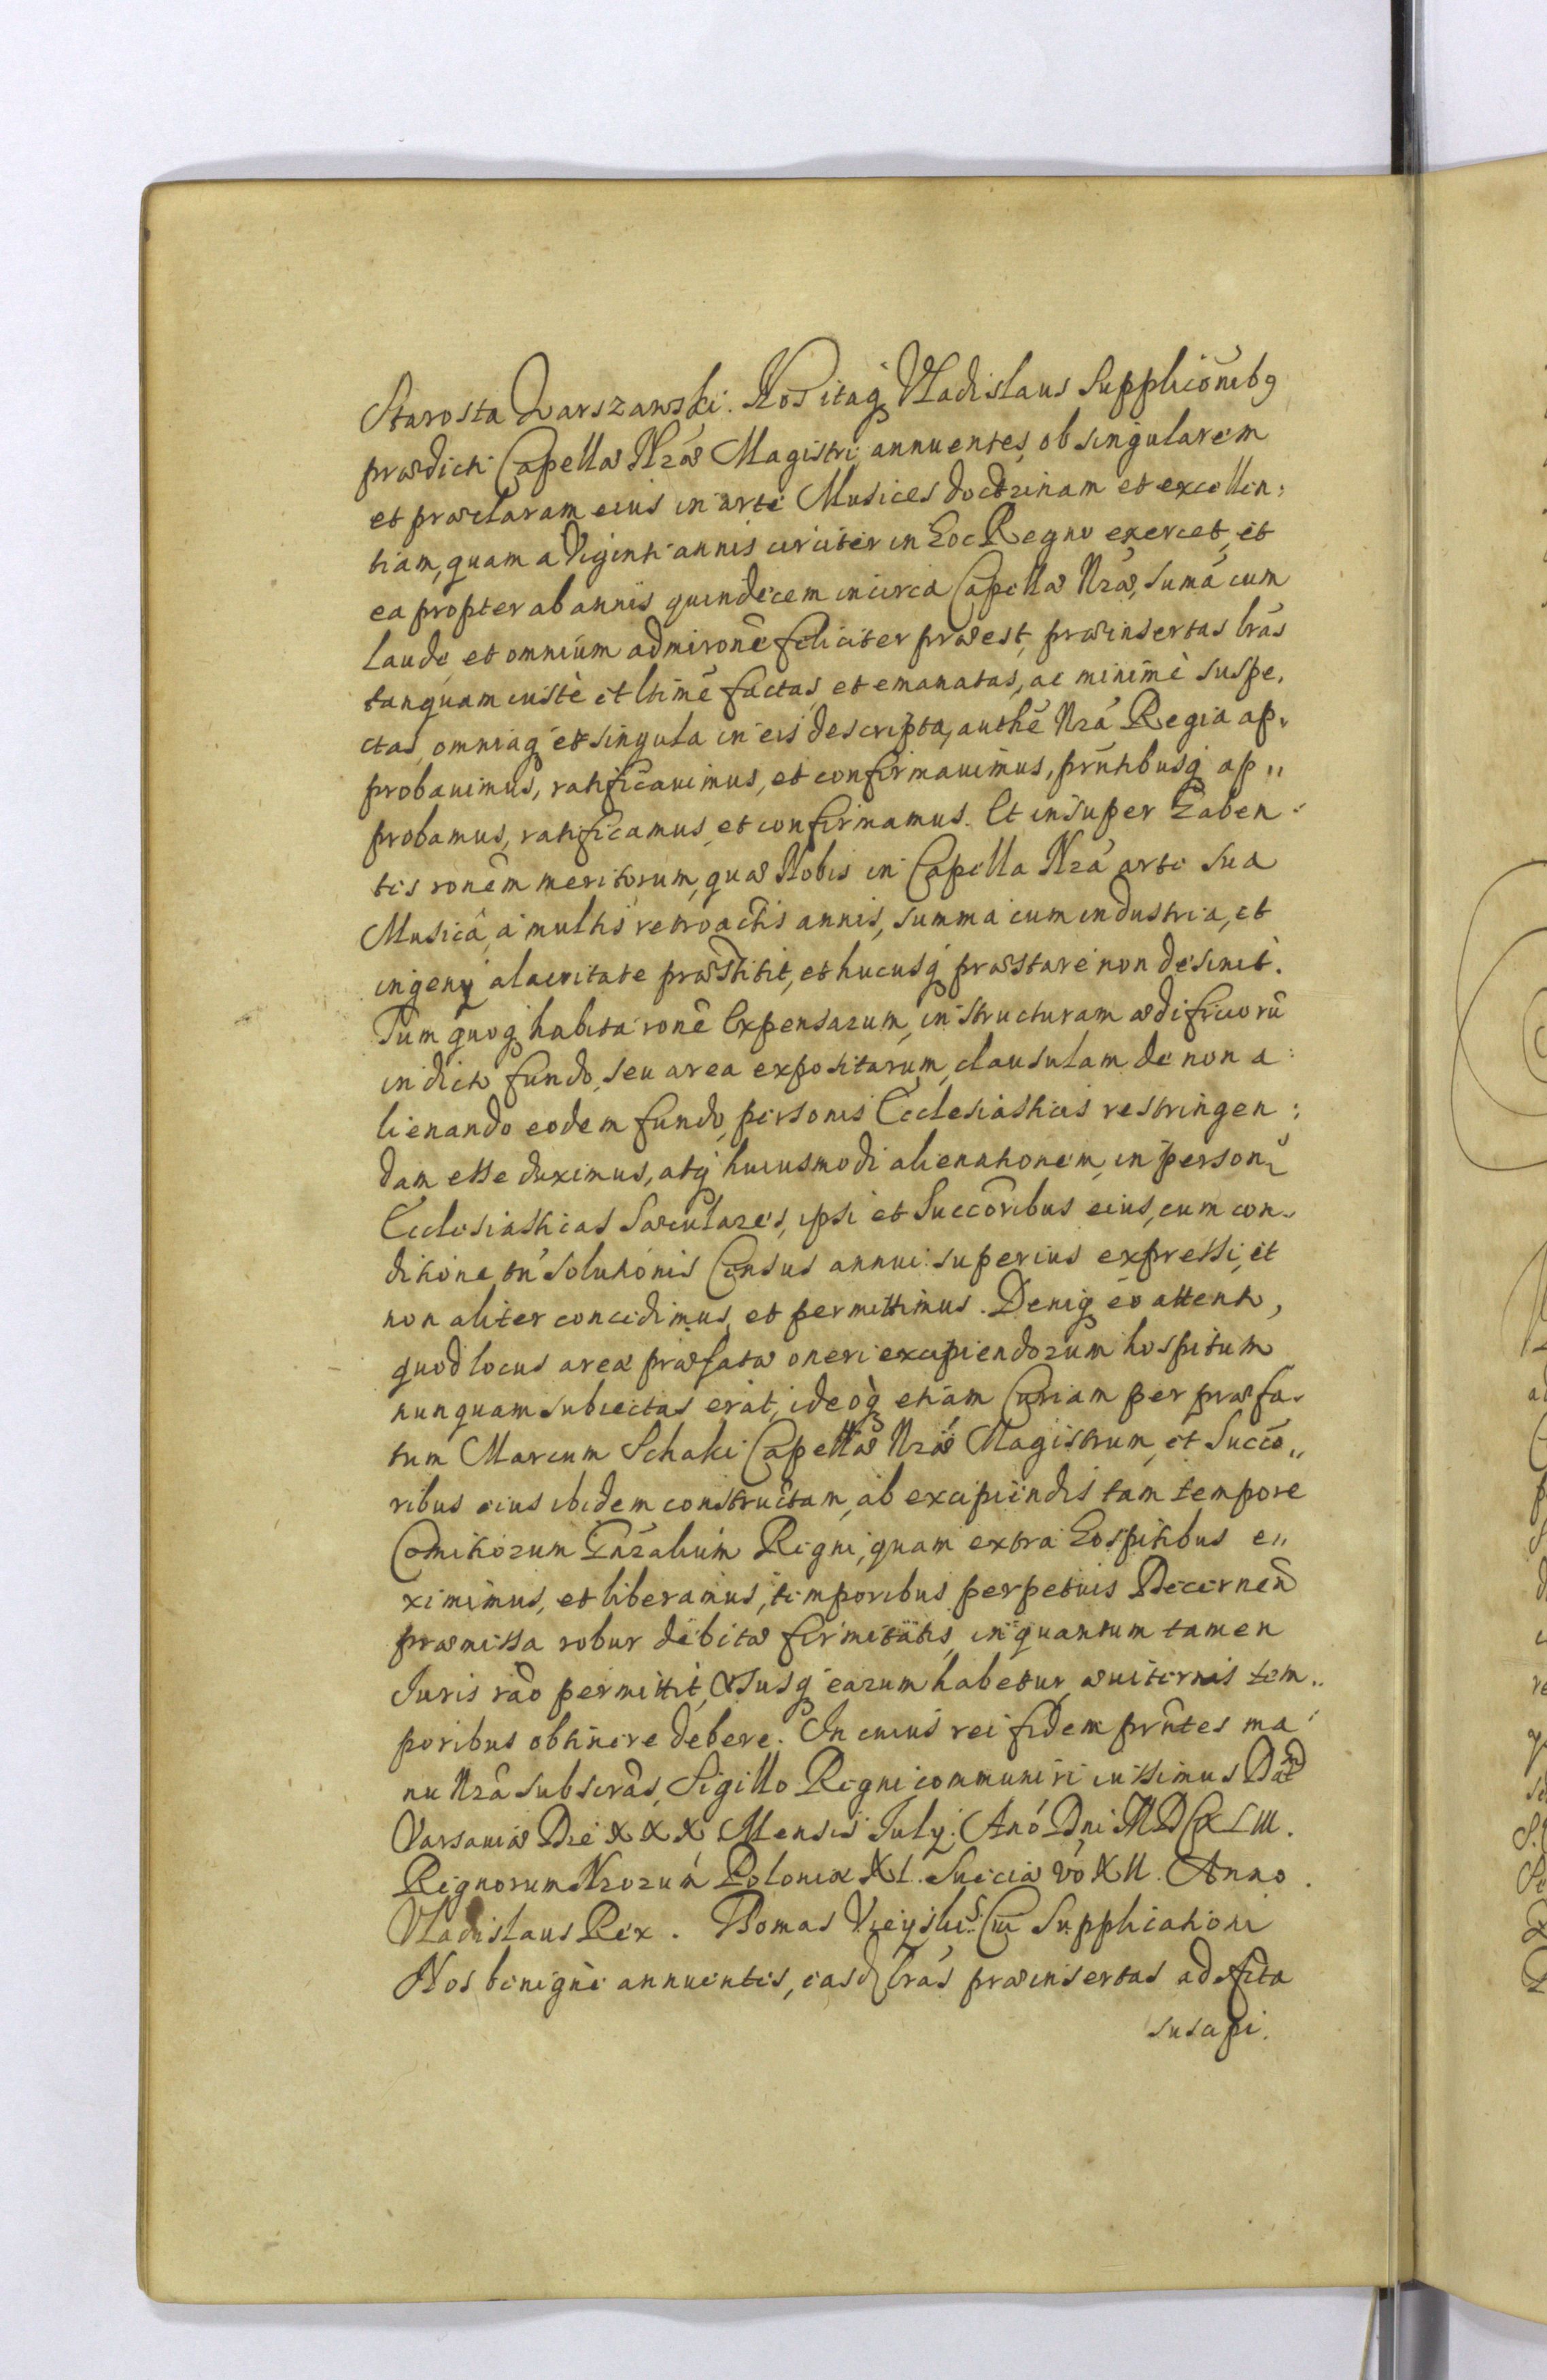 Starosta Warszawski. Nos itaq Vladislaus Supplicõnibq
prædicti Capellæ Nræ Magistri annuentes, ob singularem
et præclaram eius in arte Musices doctrinam et excellen:
tiam, quam a Viginti annis circiter in hoc Regno exercet, et
ea propter ab annis quindecem in circa Capellæ Nræ, sumá cum
laude, et omnium admironẽ feliciter præest, præinsertas lrás
tanquam iustè et ltimẽ factas, et emanatas, ac minimè suspe,
ctas, omniaq et singula in eis descripta, authẽ Nrá Regia ap,
probauimus, ratificauimus, et confirmauimus, prñtibusq ap,,
probamus, ratificamus, et confirmamus. Et insuper haben:
tes ronẽm meritorum, quæ Nobis in Capella Nrá arte sua
Musicâ, á multis retroactis annis, summa cum industria, et
ingenij alacritate præstitit, et hucusq præstare non desinit.
Tum quoq habita ronẽ Expensarum, in structuram ædificiorũ
in dicto fundo, seu area expositarum, clausulam de non a:
lienando eodem fundo, personis Ecclesiasticis restringen:
dam esse duximus, atq huiusmodi alienationem, in personas
Ecclesiasticas Sæculares, ipsi et Succõribus eius, cum con,
ditione tñ solutionis Census annui superius expressi, et
non aliter concedimus, et permittimus. Deniq eo attento,
quod locus areæ præfatæ oneri excipiendorum hospitum
nunquam subiectas erat, ideoq etiám Curiam per præfa,
tum Marcum Schaki Capellæ Nræ Magistrum, et Succõ,,
ribus eius ibidem constructam, ab excipiendis tam tempore
Comitiorum Gnraliúm Regni, quam extra hospitibus e,,
ximimus, et liberamus, temporibus perpetuis Decernẽn
præmissa robur debitæ firmitatis, in quantum tamen
Iuris rão permittit, Vsusq earum habetur, æuiternis tem,,
poribus obtinere debere. In cuius rei fidem prñtes ma
nu Nrâ subscrãs, Sigillo Regni communiri iussimus Dat
Varsauiæ Die XXX Mensis Iulij. Anó Dni MDCXLIII.
Regnorum Nrorum Poloniæ XI. Sueciæ vó XII. Anno.
Vladislaus Rex. Thomas Vieyski S. Cui Supplicationi
Nos benignè annuentes, easd lrás præinsertas ad Acta
suscipi.